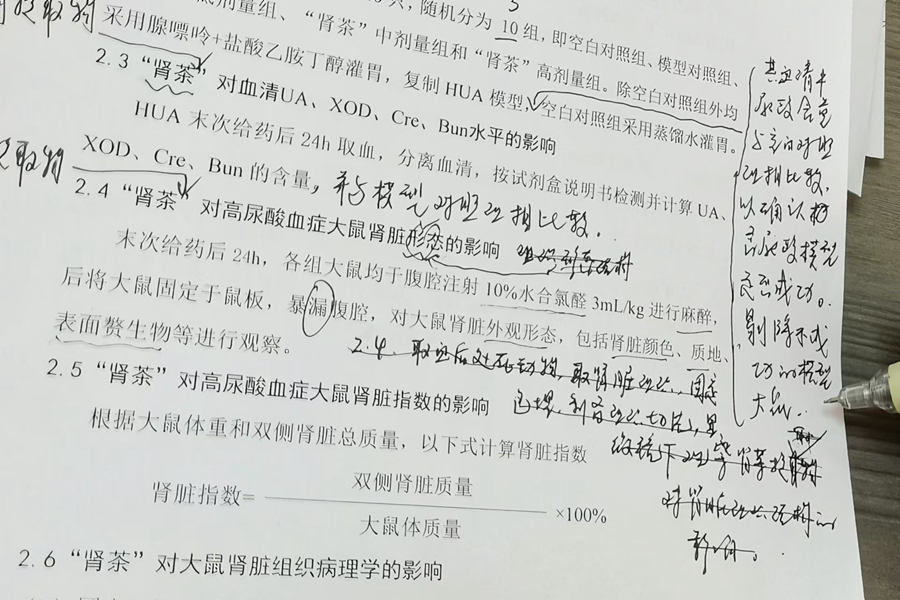 只，随机分为10组，即空白对照组、模型对照组、
剂量组、“肾茶”中剂量组和“肾茶”高剂量组。除空白对照组外均
采用腺嘌呤+盐酸乙胺丁醇灌胃，复制HUA模型，空白对照组采用蒸馏水灌胃。
2.3“肾茶”对血清UA、XOD、Cre、Bun水平的影响
HUA末次给药后24h取血，分离血清，按试剂盒说明书检测并计算UA、
XOD、Cre、Bun的含量，并与模型对照组相比较。
2.4“肾茶”对高尿酸血症大鼠肾脏形态的影响
末次给药后24h，各组大鼠均于腹腔注射10%水合氯醛3mL/kg进行麻醉，
后将大鼠固定于鼠板，暴漏腹腔，对大鼠肾脏外观形态，包括肾脏颜色、质地、
表面赘生物等进行观察。
2.4. 取血后处死动物，取肾脏组织，固定
包埋，制备组织切片，显
微镜下观察肾茶提取物
对肾脏组织结构的
影响。
2.5“肾茶”对高尿酸血症大鼠肾脏指数的影响
根据大鼠体重和双侧肾脏总质量，以下式计算肾脏指数
双侧肾脏质量
肾脏指数= ×100%
大鼠体质量
2.6“肾茶”对大鼠肾脏组织病理学的影响
其血清中
尿酸含量
与空白对照
组相比较，
以确认高
尿酸模型
是否成功。
剔除不成
功的模型
大鼠.
提取物
取物